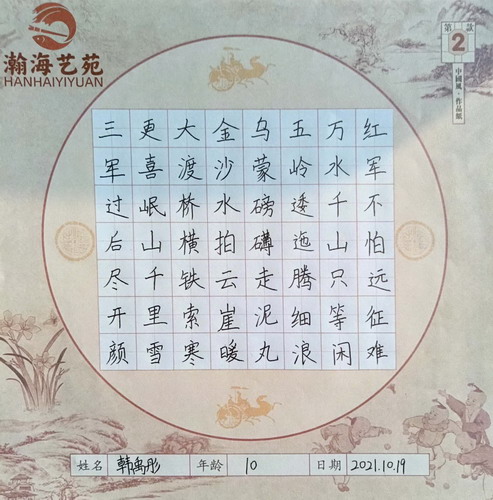 瀚海艺苑
HANHAIYIYUAN
第2款
中國風·作品紙
红军不怕远征难
万水千山只等闲
五岭逶迤腾细浪
乌蒙磅礴走泥丸
金沙水拍云崖暖
大渡桥横铁索寒
更喜岷山千里雪
三军过后尽开颜
姓名 韩禹彤 年龄 10 日期 2021.10.19